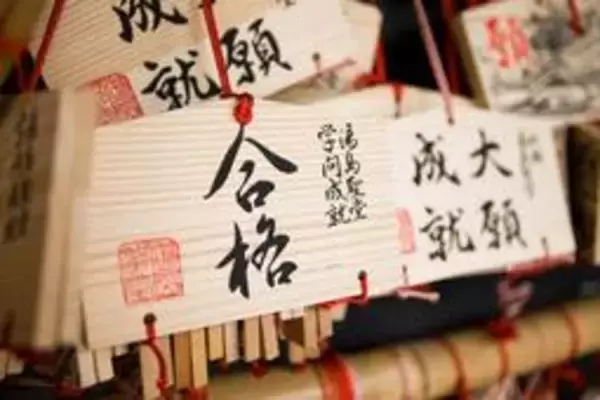 願
成就
湯島聖堂
学問成就
合格
大願
成就
願